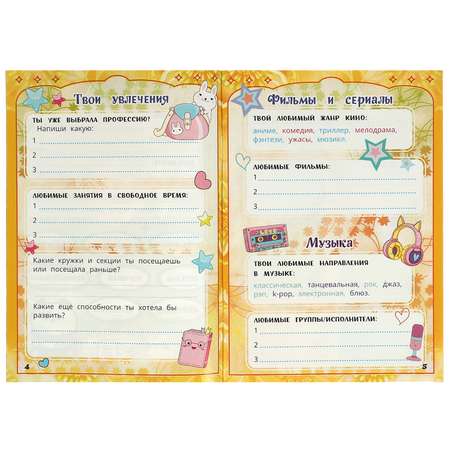 Твои увлечения
ТЫ УЖЕ ВЫБРАЛА ПРОФЕССИЮ?
Напиши какую:
1
2
3
ЛЮБИМЫЕ ЗАНЯТИЯ В СВОБОДНОЕ ВРЕМЯ:
1
2
3
Какие кружки и секции ты посещаешь
или посещала раньше?
Какие ещё способности ты хотела бы
развить?
4
Фильмы и сериалы
ТВОЙ ЛЮБИМЫЙ ЖАНР КИНО:
аниме, комедия, триллер, мелодрама,
фэнтези, ужасы, мюзикл.
ЛЮБИМЫЕ ФИЛЬМЫ:
1
2
3
Музыка
ТВОИ ЛЮБИМЫЕ НАПРАВЛЕНИЯ
В МУЗЫКЕ:
классическая, танцевальная, рок, джаз,
рэп, k-pop, электронная, блюз.
ЛЮБИМЫЕ ГРУППЫ/ИСПОЛНИТЕЛИ:
1
2
3
5